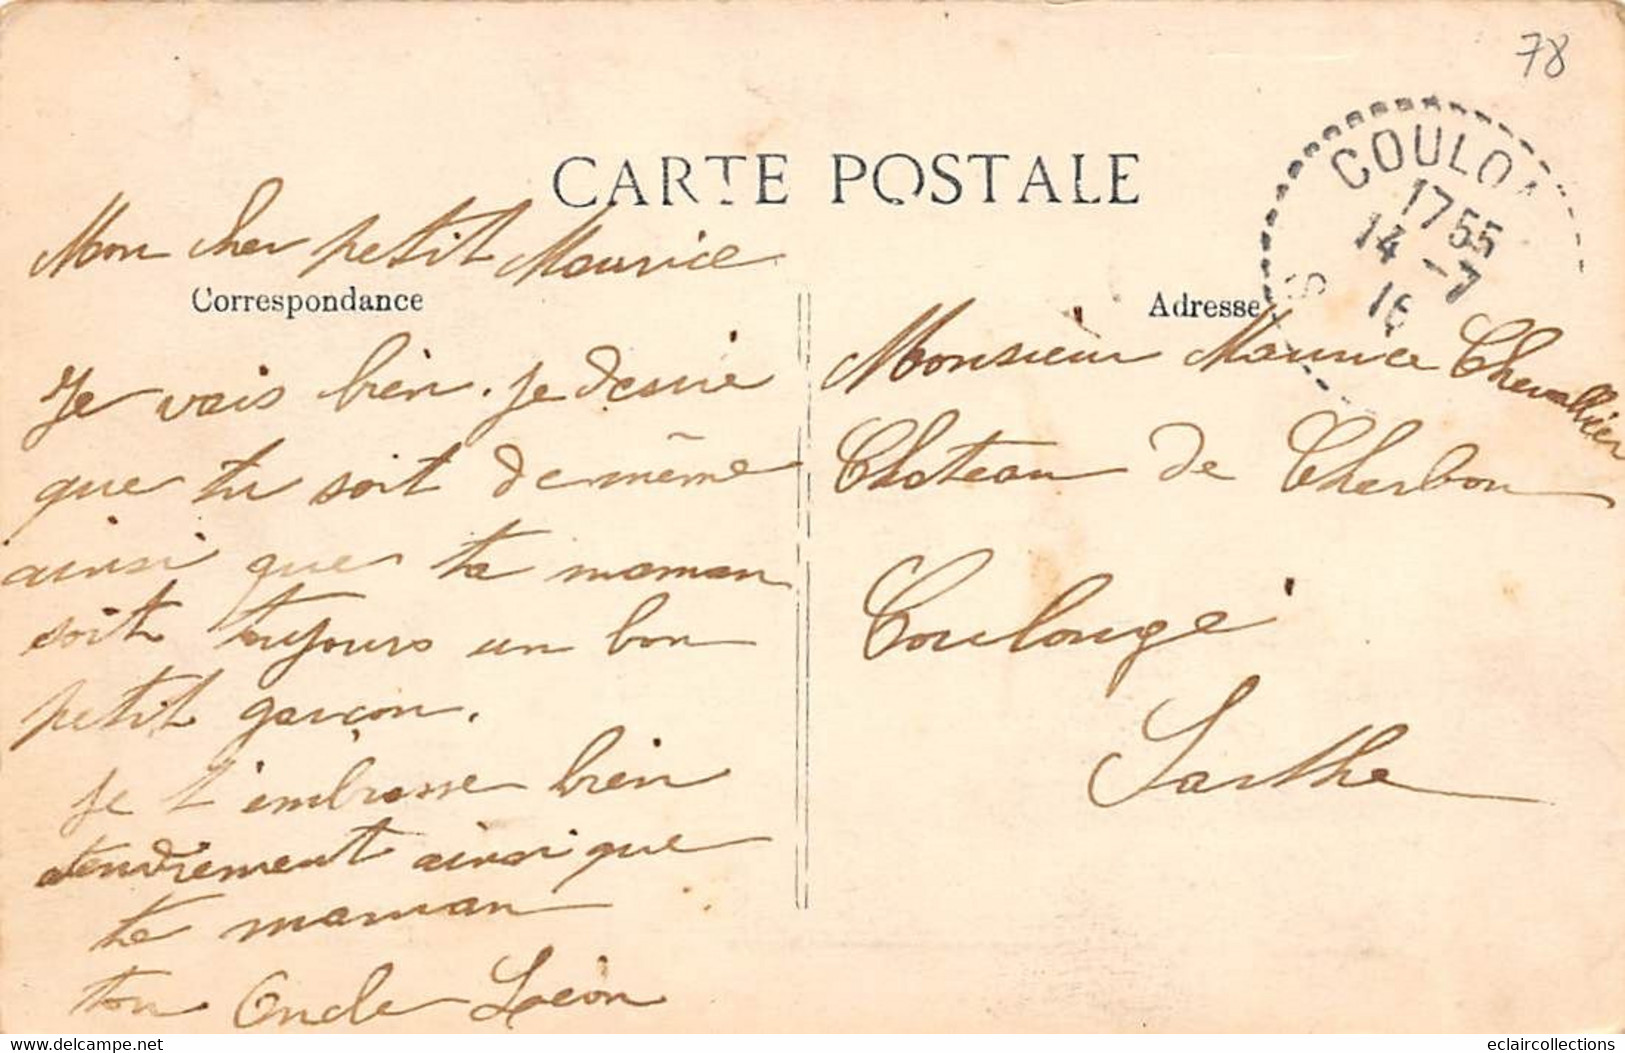 78
CARTE POSTALE
COULO
17 55
14 - 7
16
S
Mon cher petit Maurice
Correspondance
Je vais bien. je desire
que tu soit de même
ainsi que ta maman
soit toujours un bon
petit garçon.
je t'embrasse bien
tendrement ainsi que
ta maman
ton Oncle Léon
Adresse
Monsieur Maurice Chevallier
Chateau de Cherbon
Coulongé
Sarthe
delcampe.net
eclaircollections